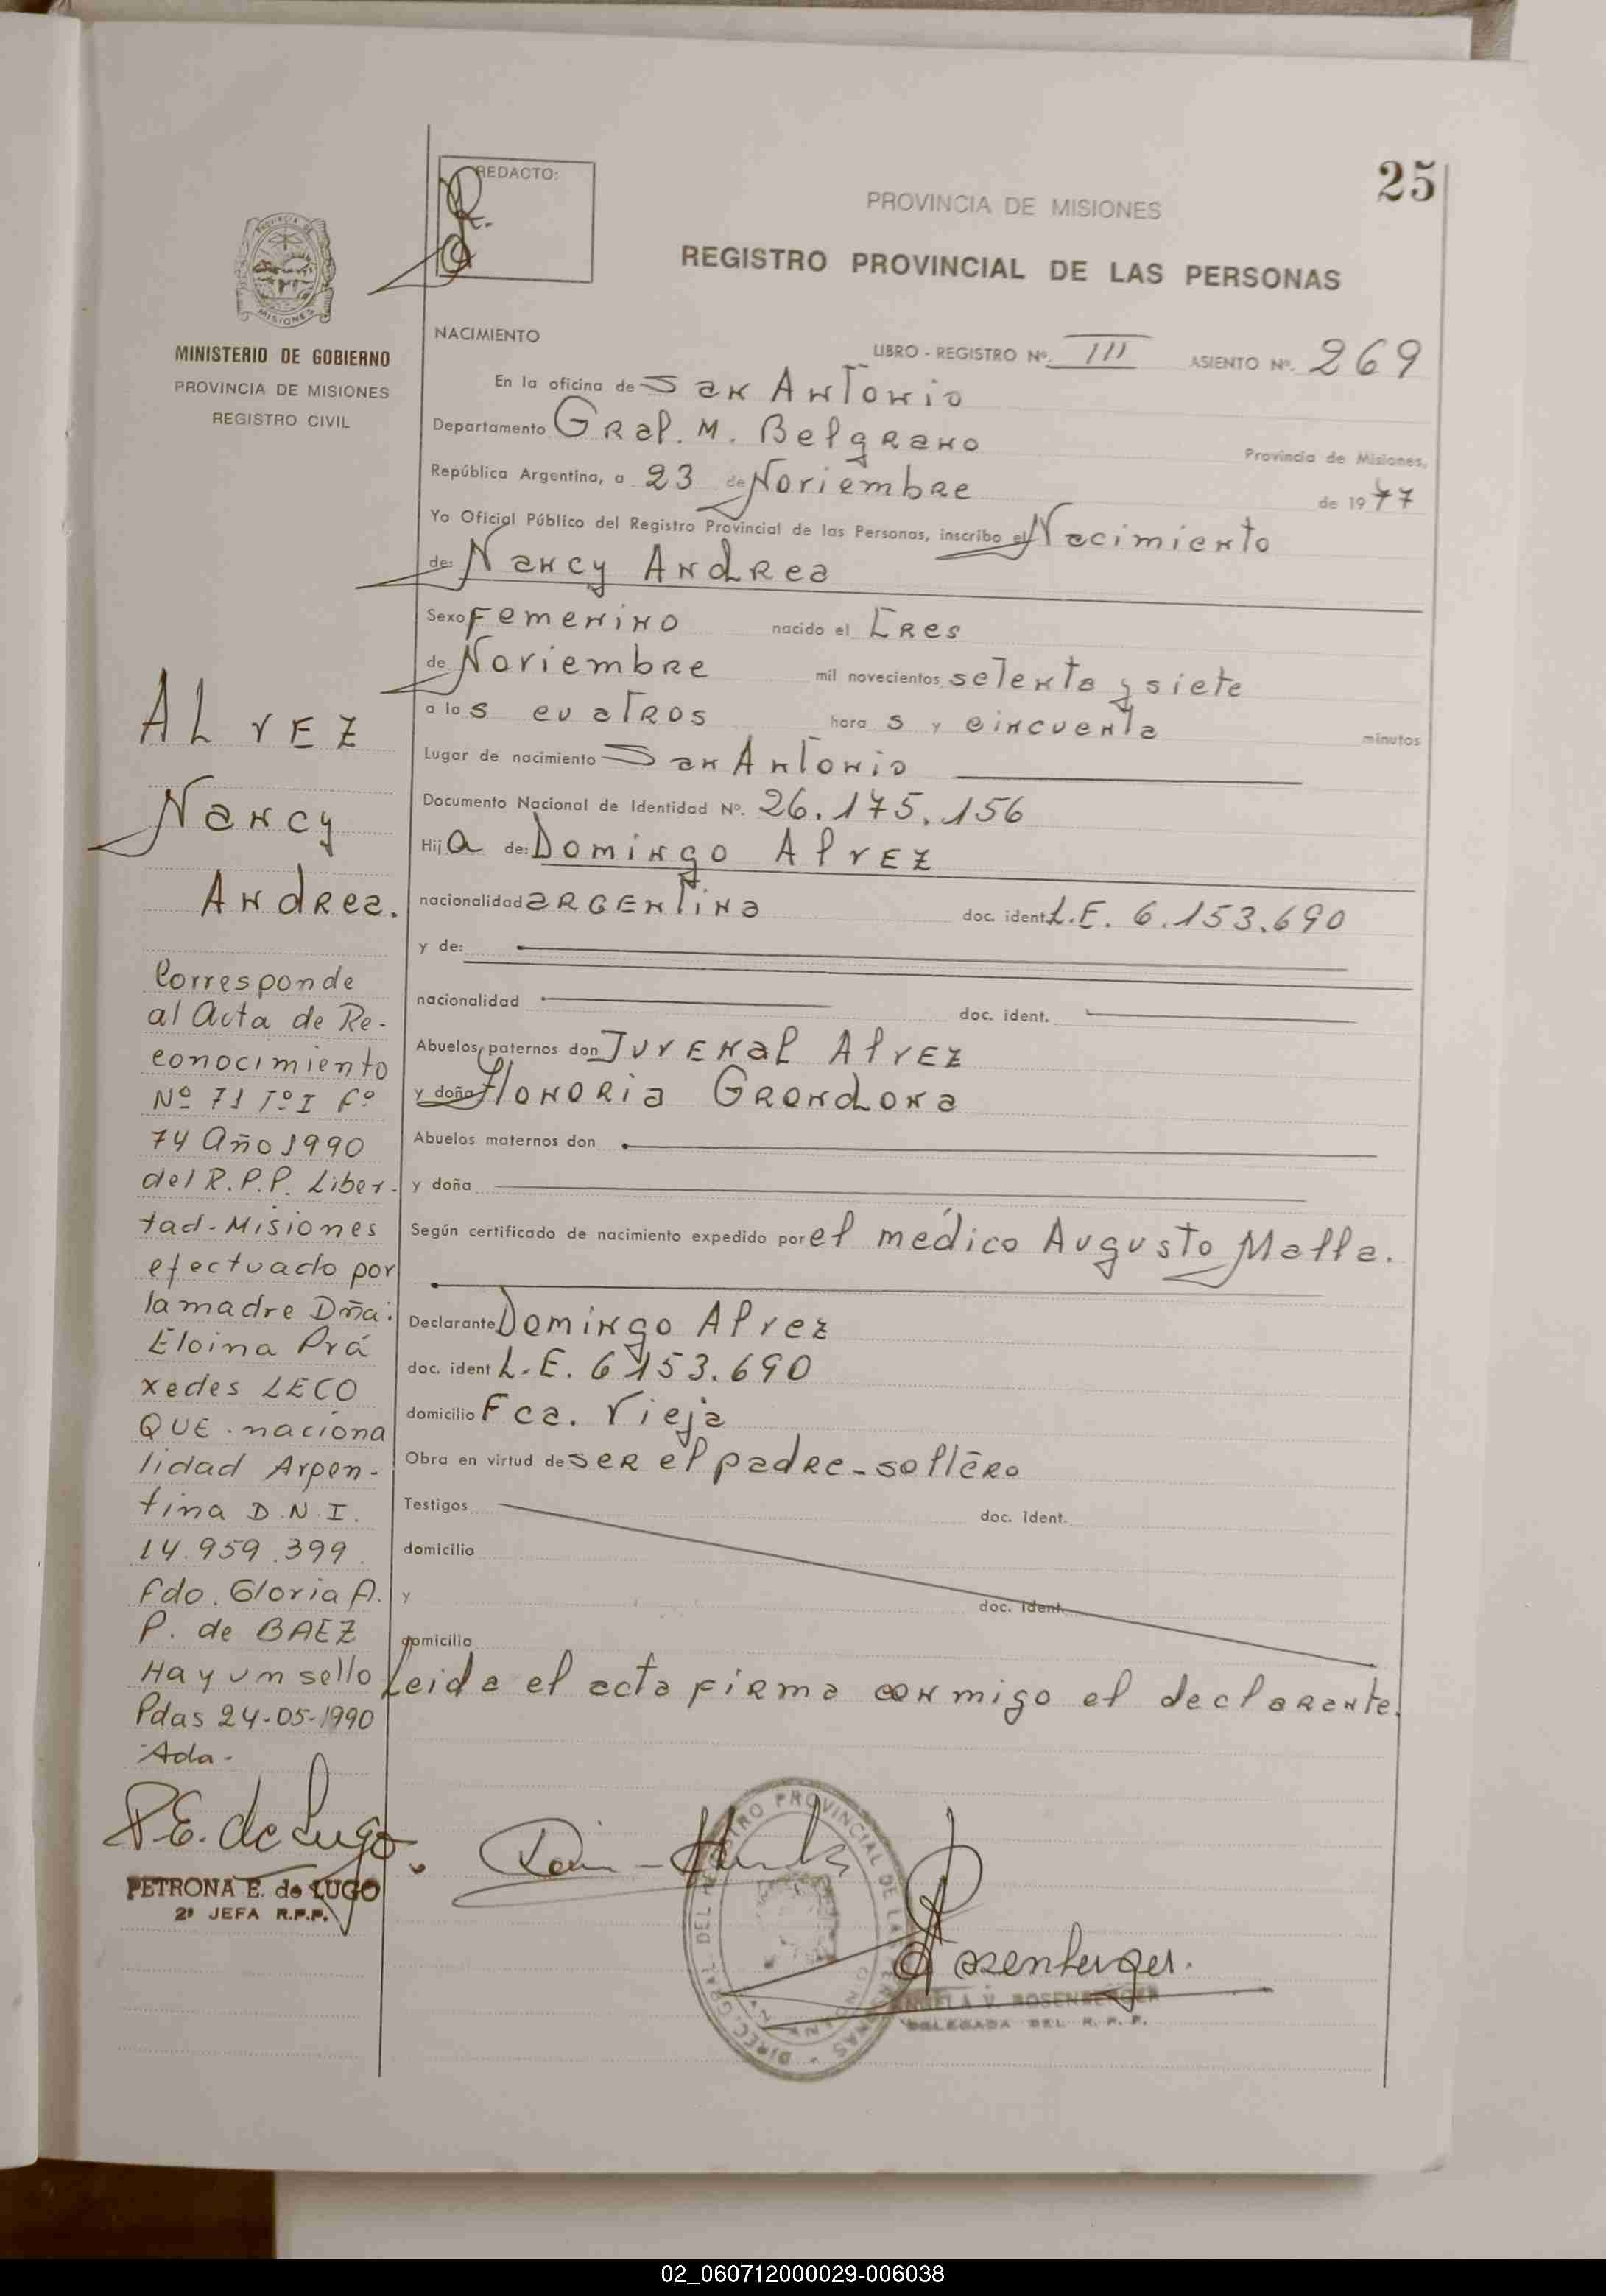 25
REDACTO:
PROVINCIA DE MISIONES
REGISTRO PROVINCIAL DE LAS PERSONAS
PROVINCIA DE
MISIONES
MINISTERIO DE GOBIERNO
PROVINCIA DE MISIONES
REGISTRO CIVIL
NACIMIENTO
LIBRO - REGISTRO Nº. III ASIENTO Nº. 269
En la oficina de San Antonio
Departamento Gral. M. Belgrano Provincia de Misiones,
República Argentina, a 23 de Noviembre de 1977
Yo Oficial Público del Registro Provincial de las Personas, inscribo el Nacimiento
de: Nancy Andrea
Sexo Femenino nacido el Tres
de Noviembre mil novecientos setenta y siete
a las cuatros horas y cincuenta minutos
Lugar de nacimiento San Antonio
Documento Nacional de Identidad Nº. 26.175.156
Hija de: Domingo Alvez
nacionalidad argentina doc. ident. L.E. 6.153.690
y de:
nacionalidad doc. ident.
Abuelos paternos don Juvenal Alvez
y doña Honoria Grondona
Abuelos maternos don
y doña
Según certificado de nacimiento expedido por el médico Augusto Malla.
Declarante Domingo Alvez
doc. ident L.E. 6 153.690
domicilio Fca. Vieja
Obra en virtud de ser el padre - soltero
Testigos doc. ident.
domicilio
y doc. ident.
domicilio
Leida el acta firma conmigo el declarante.
ALVEZ
Nancy
Andrea.
Corresponde
al Acta de Re-
conocimiento
Nº 71 TºI Fº
74 Año 1990
del R.P.P. Liber-
tad-Misiones
efectuado por
la madre Dña:
Eloina Prá
xedes LECO
QUE. naciona
lidad Argen-
tina D.N.I.
14.959.399
Fdo. Gloria A.
P. de BAEZ
Hay un sello
Pdas 24-05-1990
Ada-
P.E. de Lugo
PETRONA E. de LUGO
2ª JEFA R.P.P.
DIREC. GRAL. DEL REGISTRO PROVINCIAL DE LAS PERSONAS
Rosenberger.
ANGELA V. ROSENBERGER
DELEGADA DEL R. P. P.
02_060712000029-006038